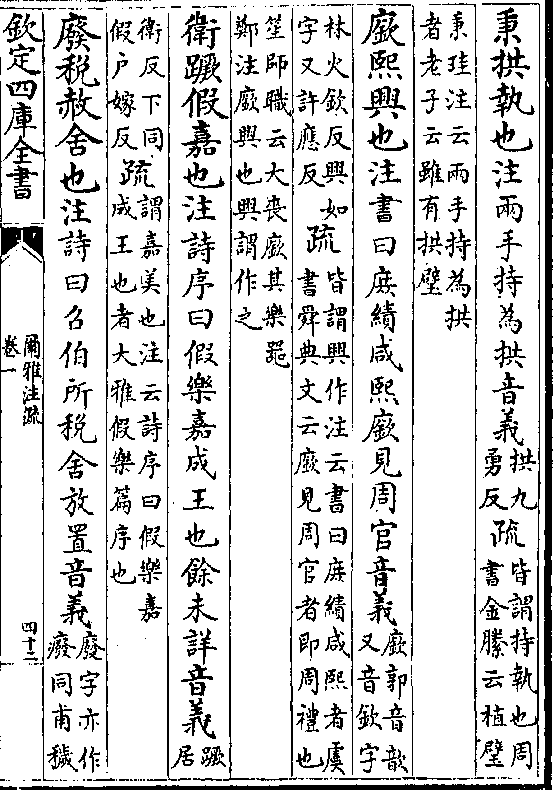 秉拱執也注兩手持為拱音義拱九
勇反疏皆謂持執也周
書金縢云植璧
秉珪注云兩手持為拱
者老子云雖有拱璧
廞熙興也注書曰庶績咸熙廞見周官音義廞郭音歆
又音欽字
林火欽反興如
字又許應反疏皆謂興作注云書曰庶績咸熙者虞
書舜典文云廞見周官者即周禮也
笙師職云大喪廞其樂器
鄭注廞興也興謂作之
衛蹶假嘉也注詩序曰假樂嘉成王也餘未詳音義蹶
居
衛反下同
假户嫁反疏謂嘉美也注云詩序曰假樂嘉
成王也者大雅假樂篇序也
廢稅赦舍也注詩曰召伯所稅舍放置音義廢字亦作
癈同甫穢
欽定四庫全書
爾雅注疏
卷一
四十二